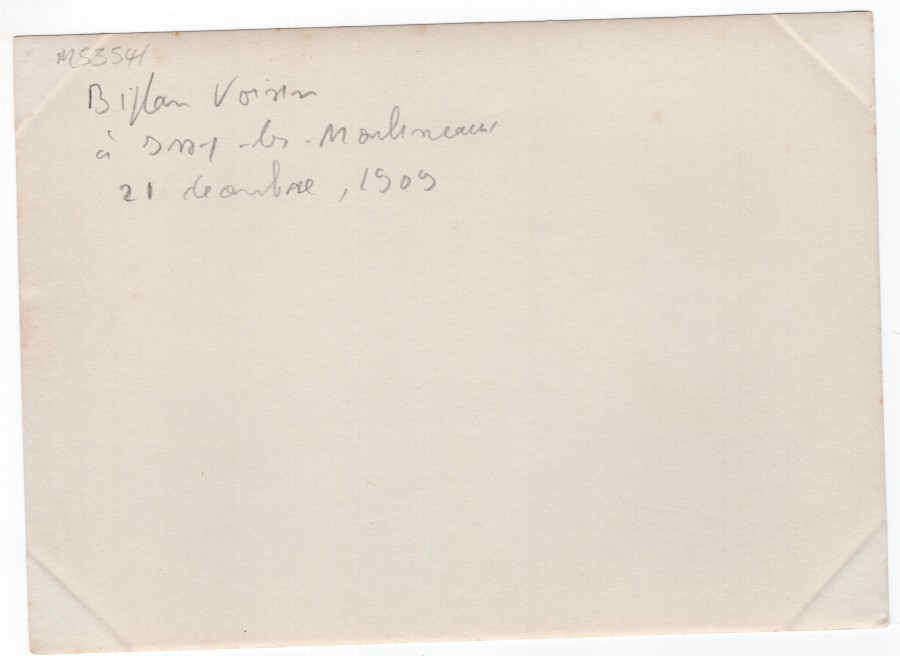 M53541
Biplan Voisin
à Issy-les-Moulineaux
21 décembre, 1909